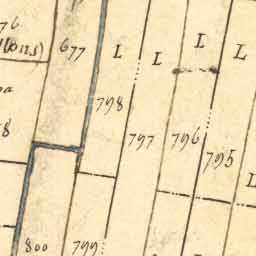 76
677
L
L
L
L
798
797
796
795
8
L
800
799